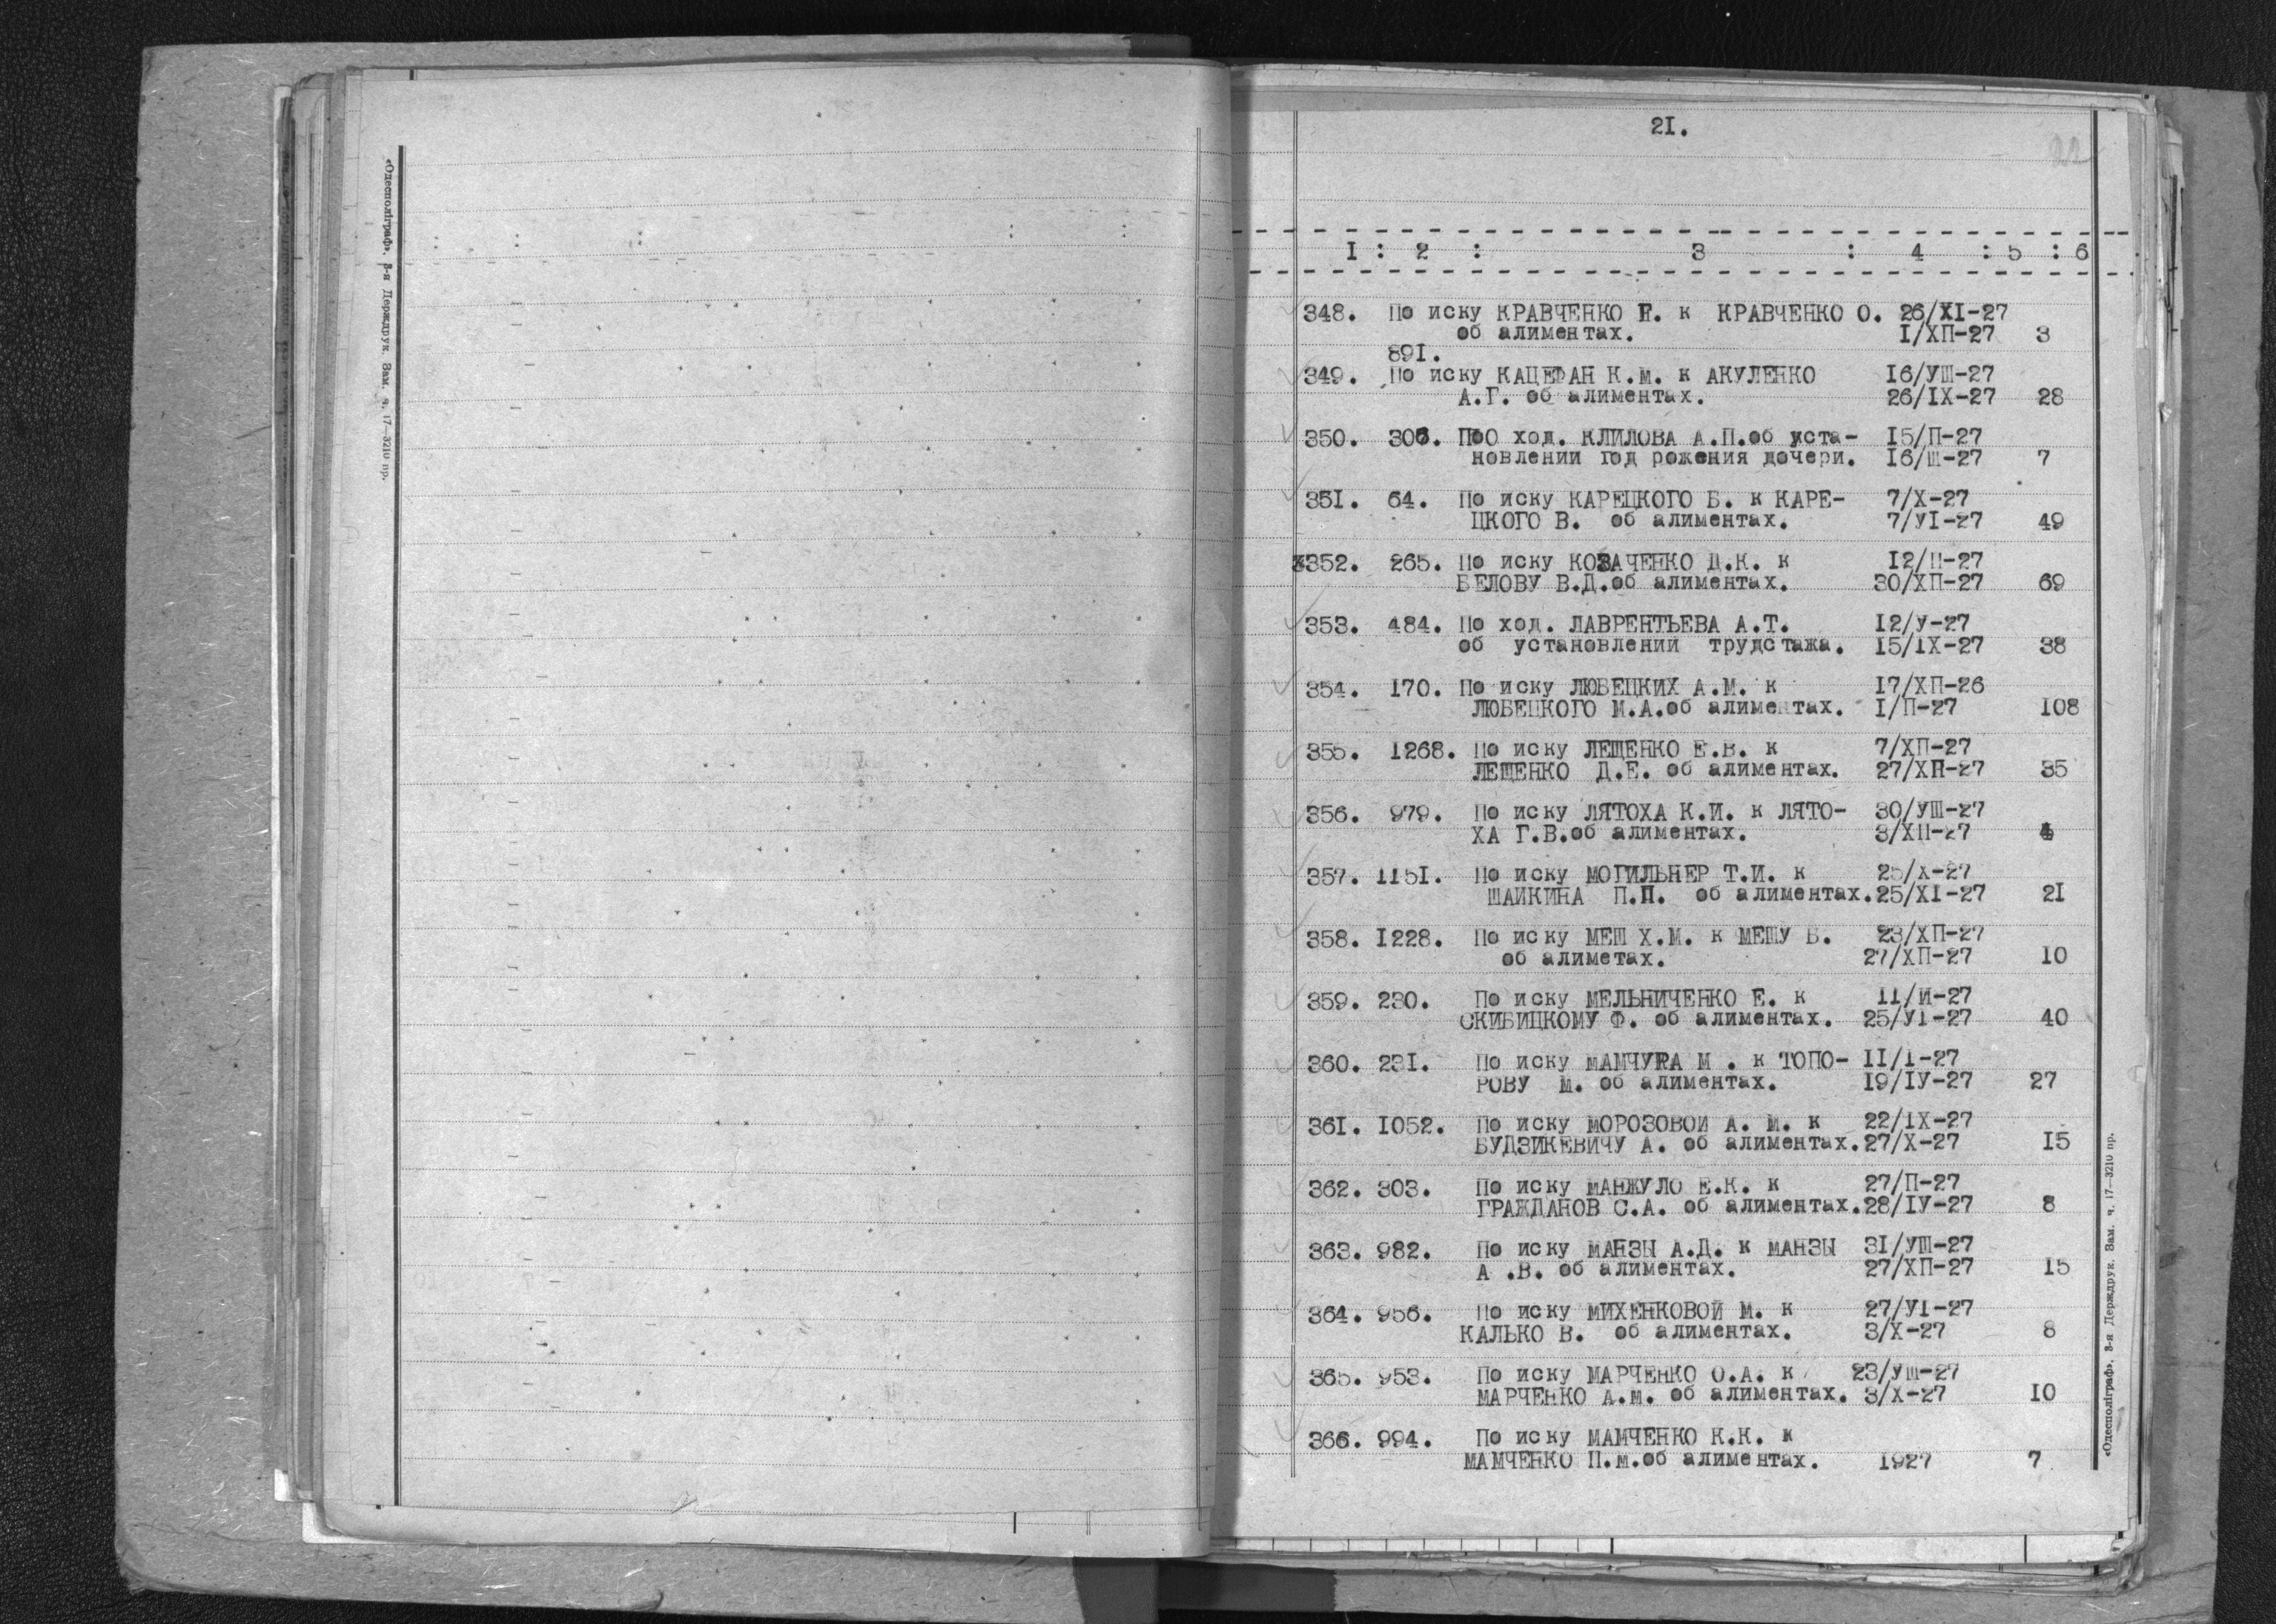 «Одесполіграф». 3-я Держдрук. Зам. ч. 17—3210 пр.
21.
22
I : 2 : 3 : 4 : 5 : 6
348. По иску КРАВЧЕНКО Е. к КРАВЧЕНКО О. 26/XI-27
об алиментах. I/ХП-27 3
891.
349. По иску КАЦЕФАН К.М. к АКУЛЕНКО I6/УШ-27
А.Г. об алиментах. 26/IX-27 28
350. 306. ПоО ход. КЛИЛОВА А.П.об уста- I5/П-27
новлении год рожения дочери. I6/Ш-27 7
351. 64. По иску КАРЕЦКОГО Б. к КАРЕ- 7/Х-27
ЦКОГО В. об алиментах. 7/УI-27 49
352. 265. По иску КОЗАЧЕНКО Д.К. к I2/П-27
БЕЛОВУ В.Д.об алиментах. 30/ХП-27 69
353. 484. По ход. ЛАВРЕНТЬЕВА А.Т. I2/У-27
об установлении трудстажа. I5/IX-27 38
354. I70. По иску ЛЮБЕЦКИХ А.М. к I7/ХП-26
ЛЮБЕЦКОГО М.А.об алиментах. I/П-27 I08
355. I268. По иску ЛЕЩЕНКО Е.В. к 7/ХП-27
ЛЕЩЕНКО Д.Е. об алиментах. 27/ХП-27 35
356. 979. По иску ЛЯТОХА К.И. к ЛЯТО- 30/УШ-27
ХА Г.В.об алиментах. 3/ХП-27 4
357. II5I. По иску МОГИЛЬНЕР Т.И. к 25/Х-27
ШАИКИНА П.П. об алиментах.25/XI-27 2I
358. I228. По иску МЕШ Х.М. к МЕШУ Б. 23/ХП-27
об алиметах. 27/ХП-27 I0
359. 230. По иску МЕЛЬНИЧЕНКО Е. к II/И-27
СКИБИЦКОМУ Ф. об алиментах. 25/УI-27 40
360. 231. По иску МАМЧУRА М . к ТОПО- II/I-27
РОВУ М. об алиментах. I9/IУ-27 27
361. I052. По иску МОРОЗОВОИ А. М. к 22/IX-27
БУДЗИКЕВИЧУ А. об алиментах.27/Х-27 I5
362. 303. По иску МАНЖУЛО Е.К. к 27/П-27
ГРАЖДАНОВ С.А. об алиментах.28/IУ-27 8
363. 982. По иску МАНЗЫ А.Д. к МАНЗЫ 3I/УШ-27
А .В. об алиментах. 27/ХП-27 I5
364. 956. По иску МИХЕНКОВОЙ М. к 27/УI-27
КАЛЬКО В. об алиментах. 3/Х-27 8
365. 953. По иску МАРЧЕНКО О.А. к 23/УШ-27
МАРЧЕНКО А.М. об алиментах. 3/Х-27 I0
366. 994. По иску МАМЧЕНКО К.К. к
МАМЧЕНКО П.М.об алиментах. I927 7
«Одесполіграф». 3-я Держдрук. Зам. ч. 17—3210 пр.